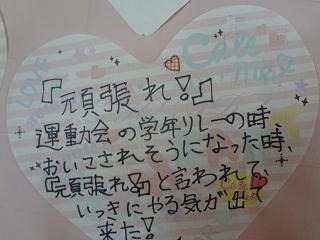 『頑張れ!』
運動会の学年リレーの時、
おいこされそうになった時、
『頑張れ!』と言われて、
いっきにやる気が出て
来た!
LOVE
Call
me